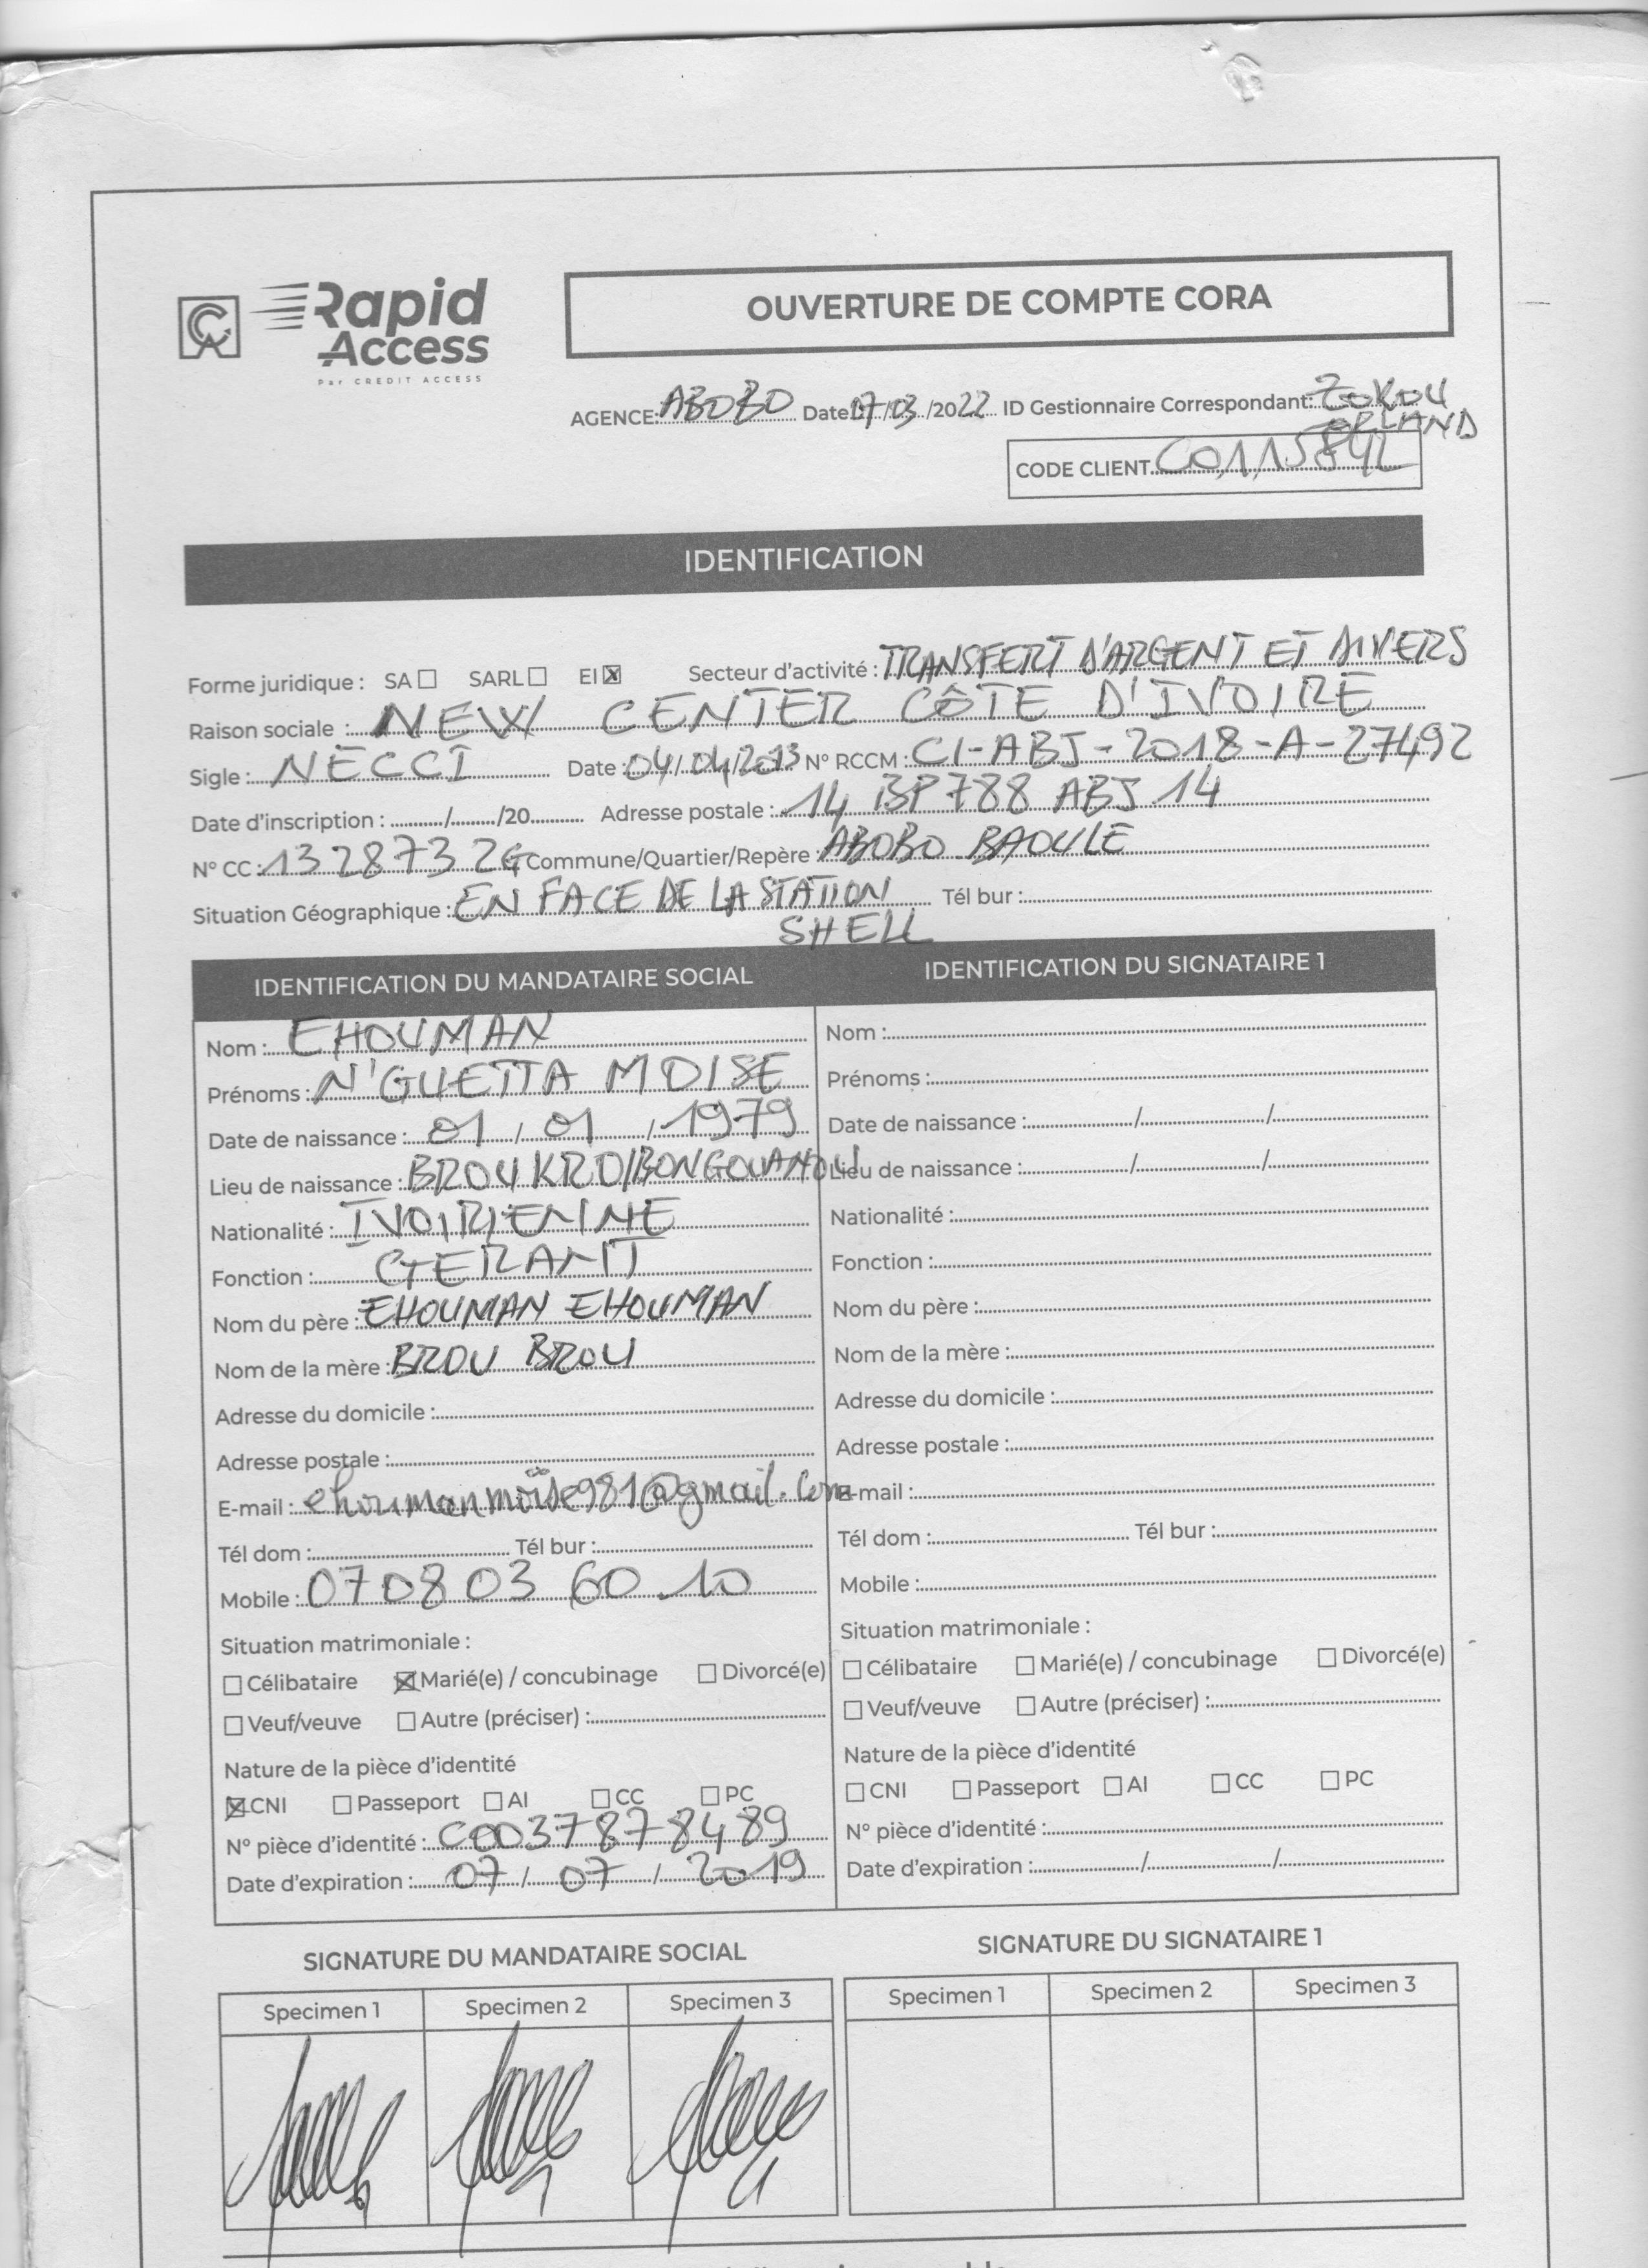 Rapid
Access
Par CREDIT ACCESS
OUVERTURE DE COMPTE CORA
AGENCE: ABOBO Date 17/03/2022 ID Gestionnaire Correspondant: ZOKOU
ORLAND
CODE CLIENT C0115842
IDENTIFICATION
Forme juridique : SA ☐ SARL ☐ EI ☒ Secteur d'activité : TRANSFERT D'ARGENT ET DIVERS
Raison sociale : NEW CENTER CÔTE D'IVOIRE
Sigle : NECCI Date : 04/04/2013 N° RCCM : CI-ABJ-2018-A-27492
Date d'inscription : ........./......../20........... Adresse postale : 14 BP 788 ABJ 14
N° CC : 1328732G Commune/Quartier/Repère : ABOBO BAOULE
Situation Géographique : EN FACE DE LA STATION Tél bur :
SHELL
IDENTIFICATION DU MANDATAIRE SOCIAL
Nom : EHOUMAN
Prénoms : N'GUETTA MOISE
Date de naissance : 01/01/1979
Lieu de naissance : BROU KRO/BONGOUANOU
Nationalité : IVOIRIENNE
Fonction : GERANT
Nom du père : EHOUMAN EHOUMAN
Nom de la mère : BROU BROU
Adresse du domicile :
Adresse postale :
E-mail : ehoumanmoïse981@gmail.com
Tél dom : Tél bur :
Mobile : 07 08 03 60 10
Situation matrimoniale :
☐ Célibataire ☒ Marié(e) / concubinage ☐ Divorcé(e)
☐ Veuf/veuve ☐ Autre (préciser) :
Nature de la pièce d'identité
☒ CNI ☐ Passeport ☐ AI ☐ CC ☐ PC
N° pièce d'identité : C0037878489
Date d'expiration : 07/07/2019
IDENTIFICATION DU SIGNATAIRE 1
Nom :
Prénoms :
Date de naissance : / /
Lieu de naissance : / /
Nationalité :
Fonction :
Nom du père :
Nom de la mère :
Adresse du domicile :
Adresse postale :
E-mail :
Tél dom : Tél bur :
Mobile :
Situation matrimoniale :
☐ Célibataire ☐ Marié(e) / concubinage ☐ Divorcé(e)
☐ Veuf/veuve ☐ Autre (préciser) :
Nature de la pièce d'identité
☐ CNI ☐ Passeport ☐ AI ☐ CC ☐ PC
N° pièce d'identité :
Date d'expiration : / /
SIGNATURE DU MANDATAIRE SOCIAL
Specimen 1 Specimen 2 Specimen 3
SIGNATURE DU SIGNATAIRE 1
Specimen 1 Specimen 2 Specimen 3